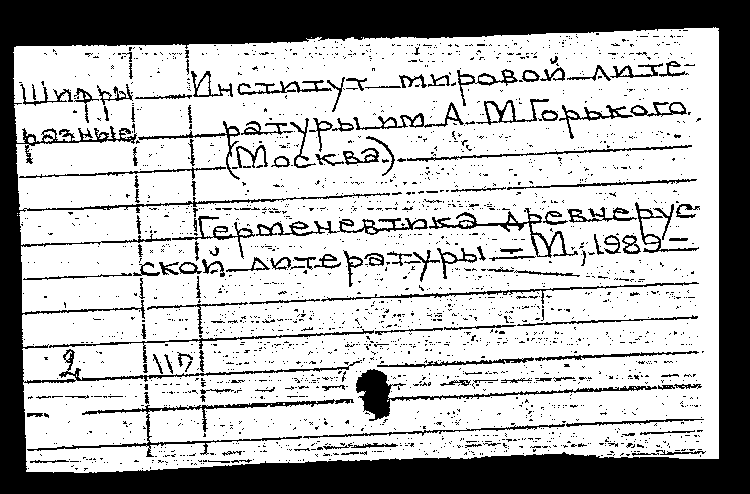 Шифры Институт мировой лите
разные ратуры им А М Горького.
(Москва)
Герменевтика древнерус
ской литературы. – М., 1989 –
2